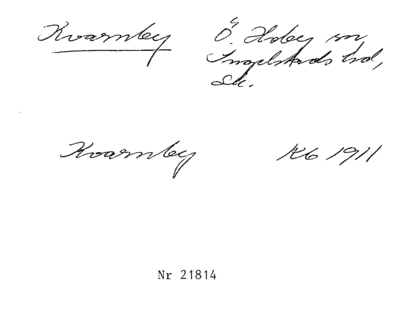 Kvarnby Ö. Hoby sn
Ingelstads hd,
Sk.
Kvarnby Kb 1911
Nr 21814